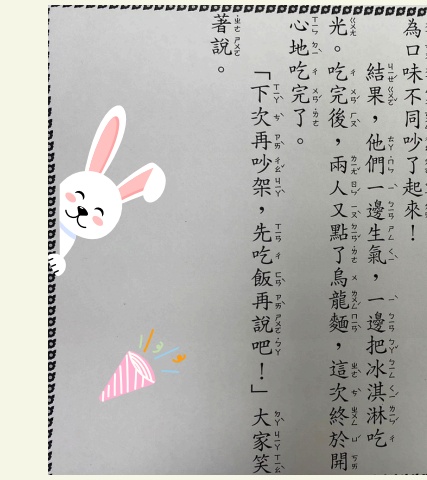 為口味不同吵了起來！
結果，他們一邊生氣，一邊把冰淇淋吃
光。吃完後，兩人又點了烏龍麵，這次終於開
心地吃完了。
「下次再吵架，先吃飯再說吧！」大家笑
著說。